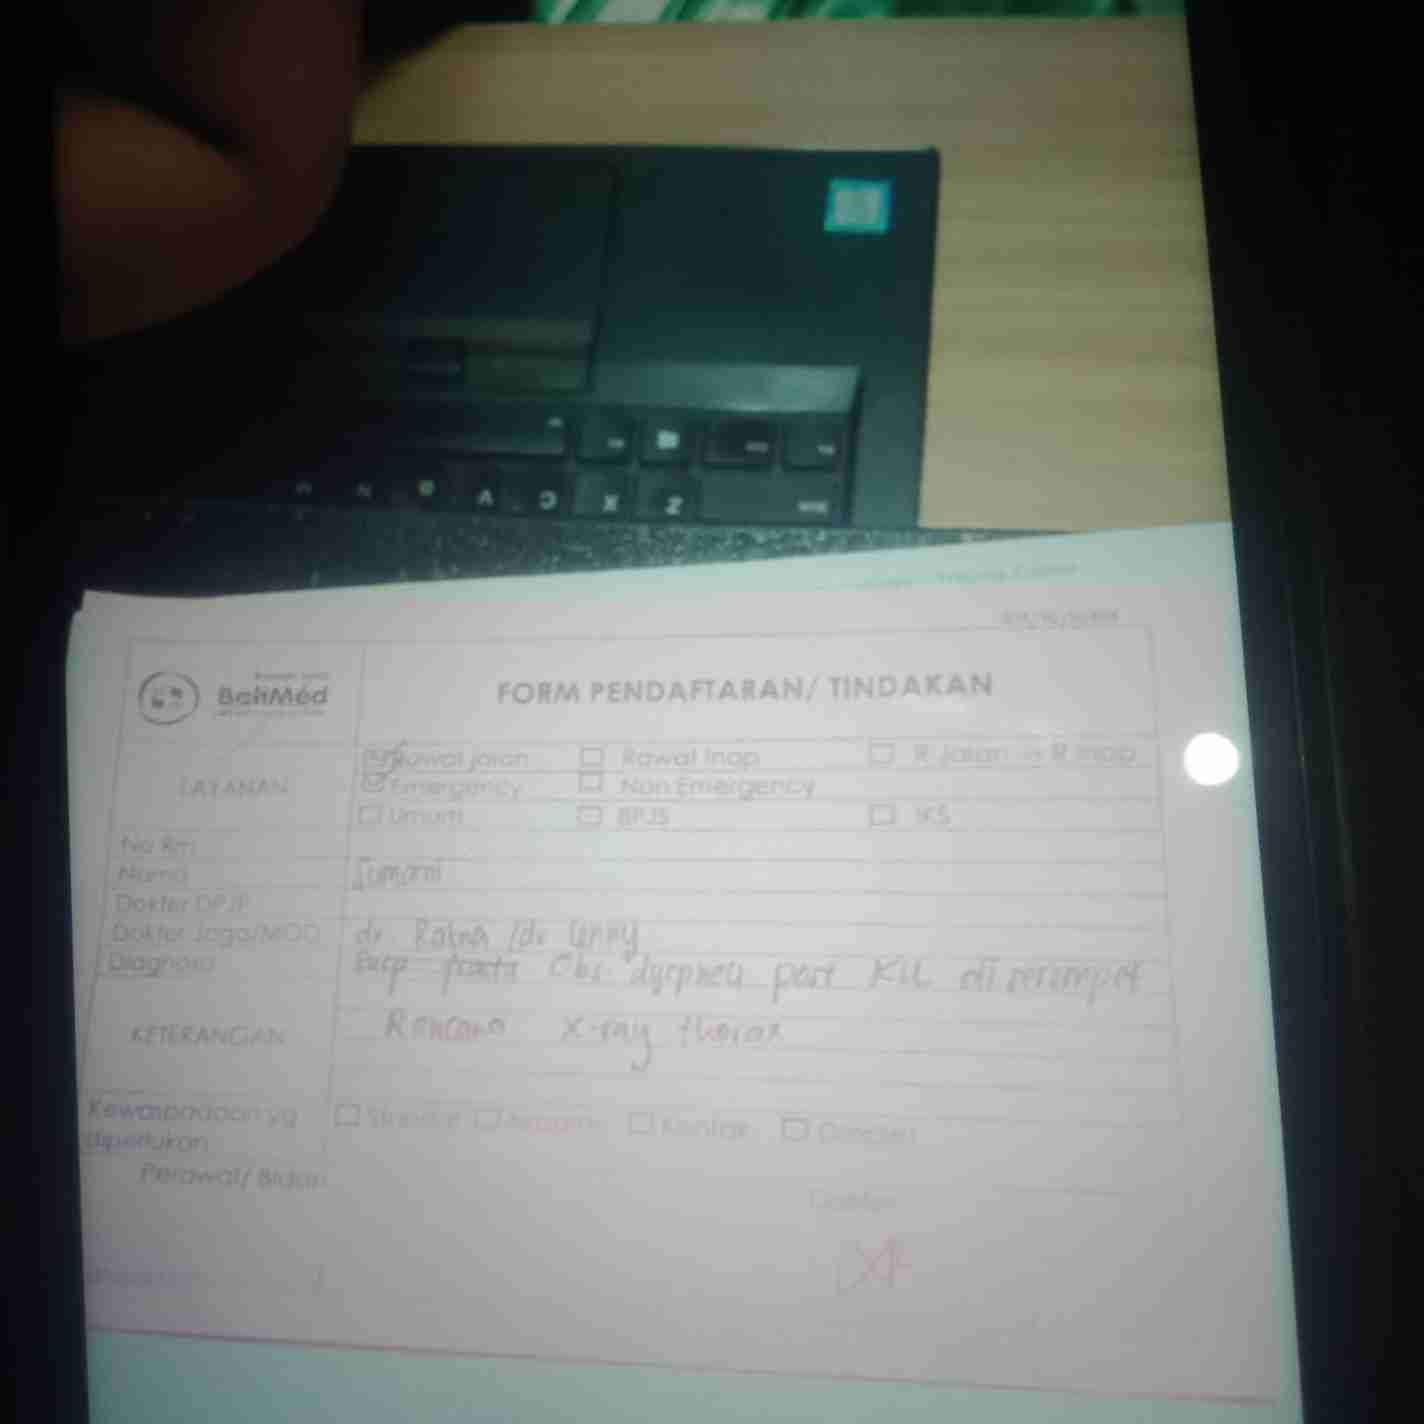 BaliMéd
FORM PENDAFTARAN/ TINDAKAN
LAYANAN
Rawat jalan Rawat Inap R Jalan R Inap
Emergency Non Emergency
Umum BPJS IKS
No Rm
Nama Sumarni
Dokter DPJP
Dokter Jaga/MOD dr. Ratna /dr Lenny
Diagnosa Obs dyspnea post KLL diserempet
KETERANGAN Rencana X-ray thorax
Kewaspadaan yg diperlukan
Kontak Droplet
Perawat/ Bidan
Z X C V B N M